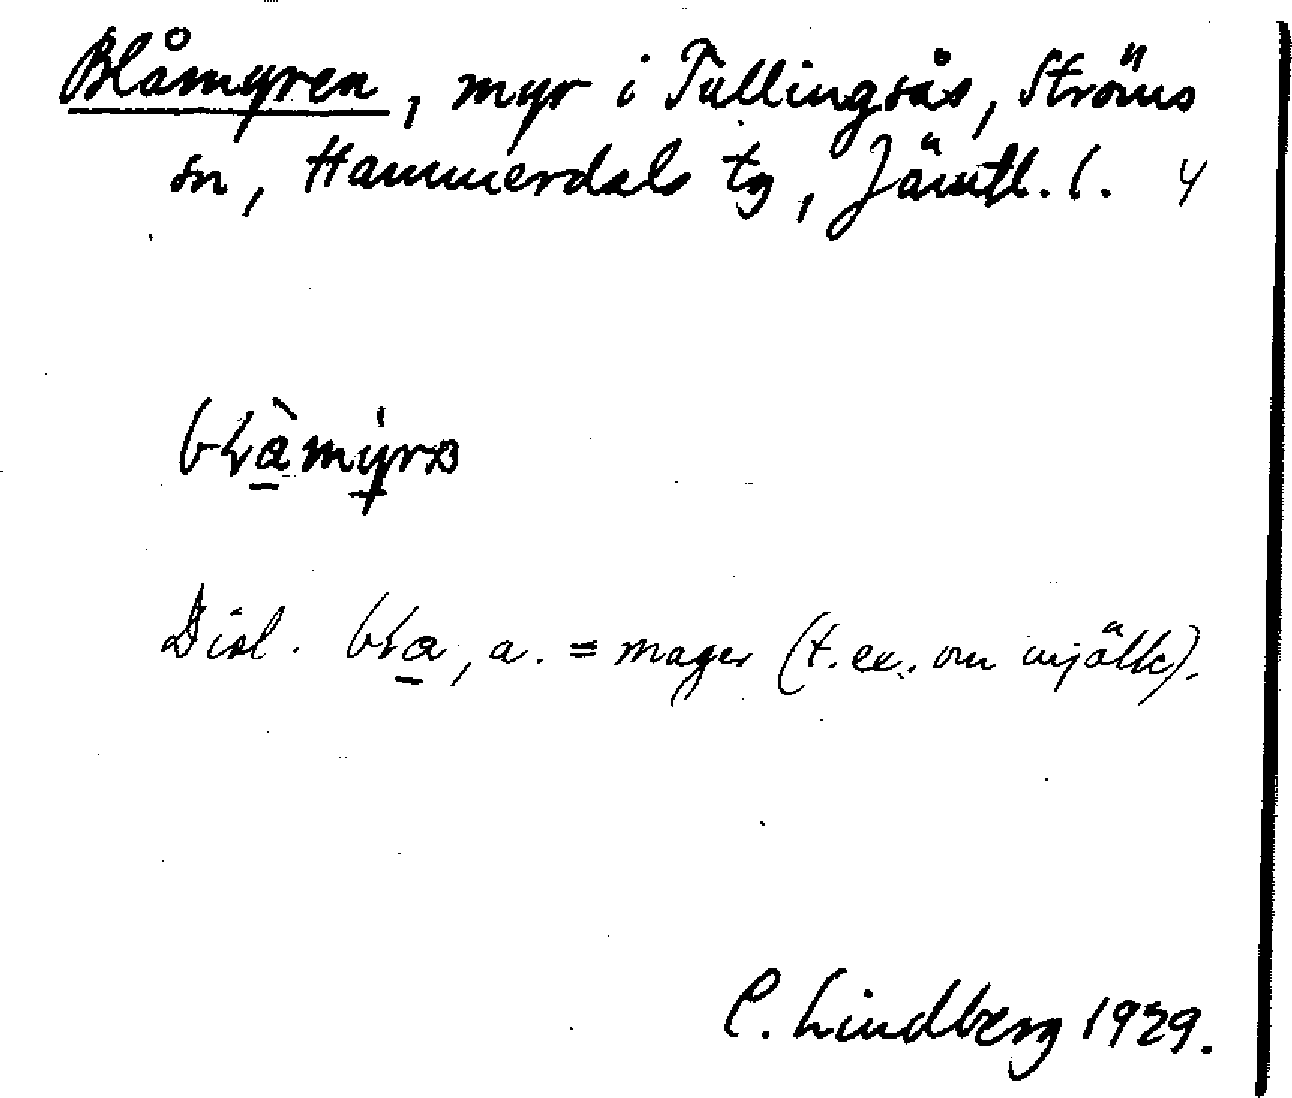 Blåmyren, myr i Tullingsås, Ströms
sn, Hammerdals tg, Jämtl. l. 4
Dial. , a. = mager (t. ex. om mjölk).
C. Lindberg 1929.